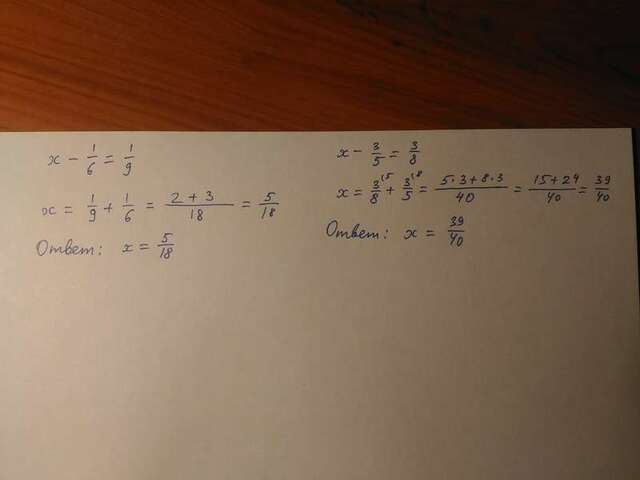 x - 1/6 = 1/9
x = 1/9 + 1/6 = (2 + 3)/18 = 5/18
Ответ: x = 5/18
x - 3/5 = 3/8
x = 3/8^{\5} + 3/5^{\8} = (5·3 + 8·3)/40 = (15 + 24)/40 = 39/40
Ответ: x = 39/40